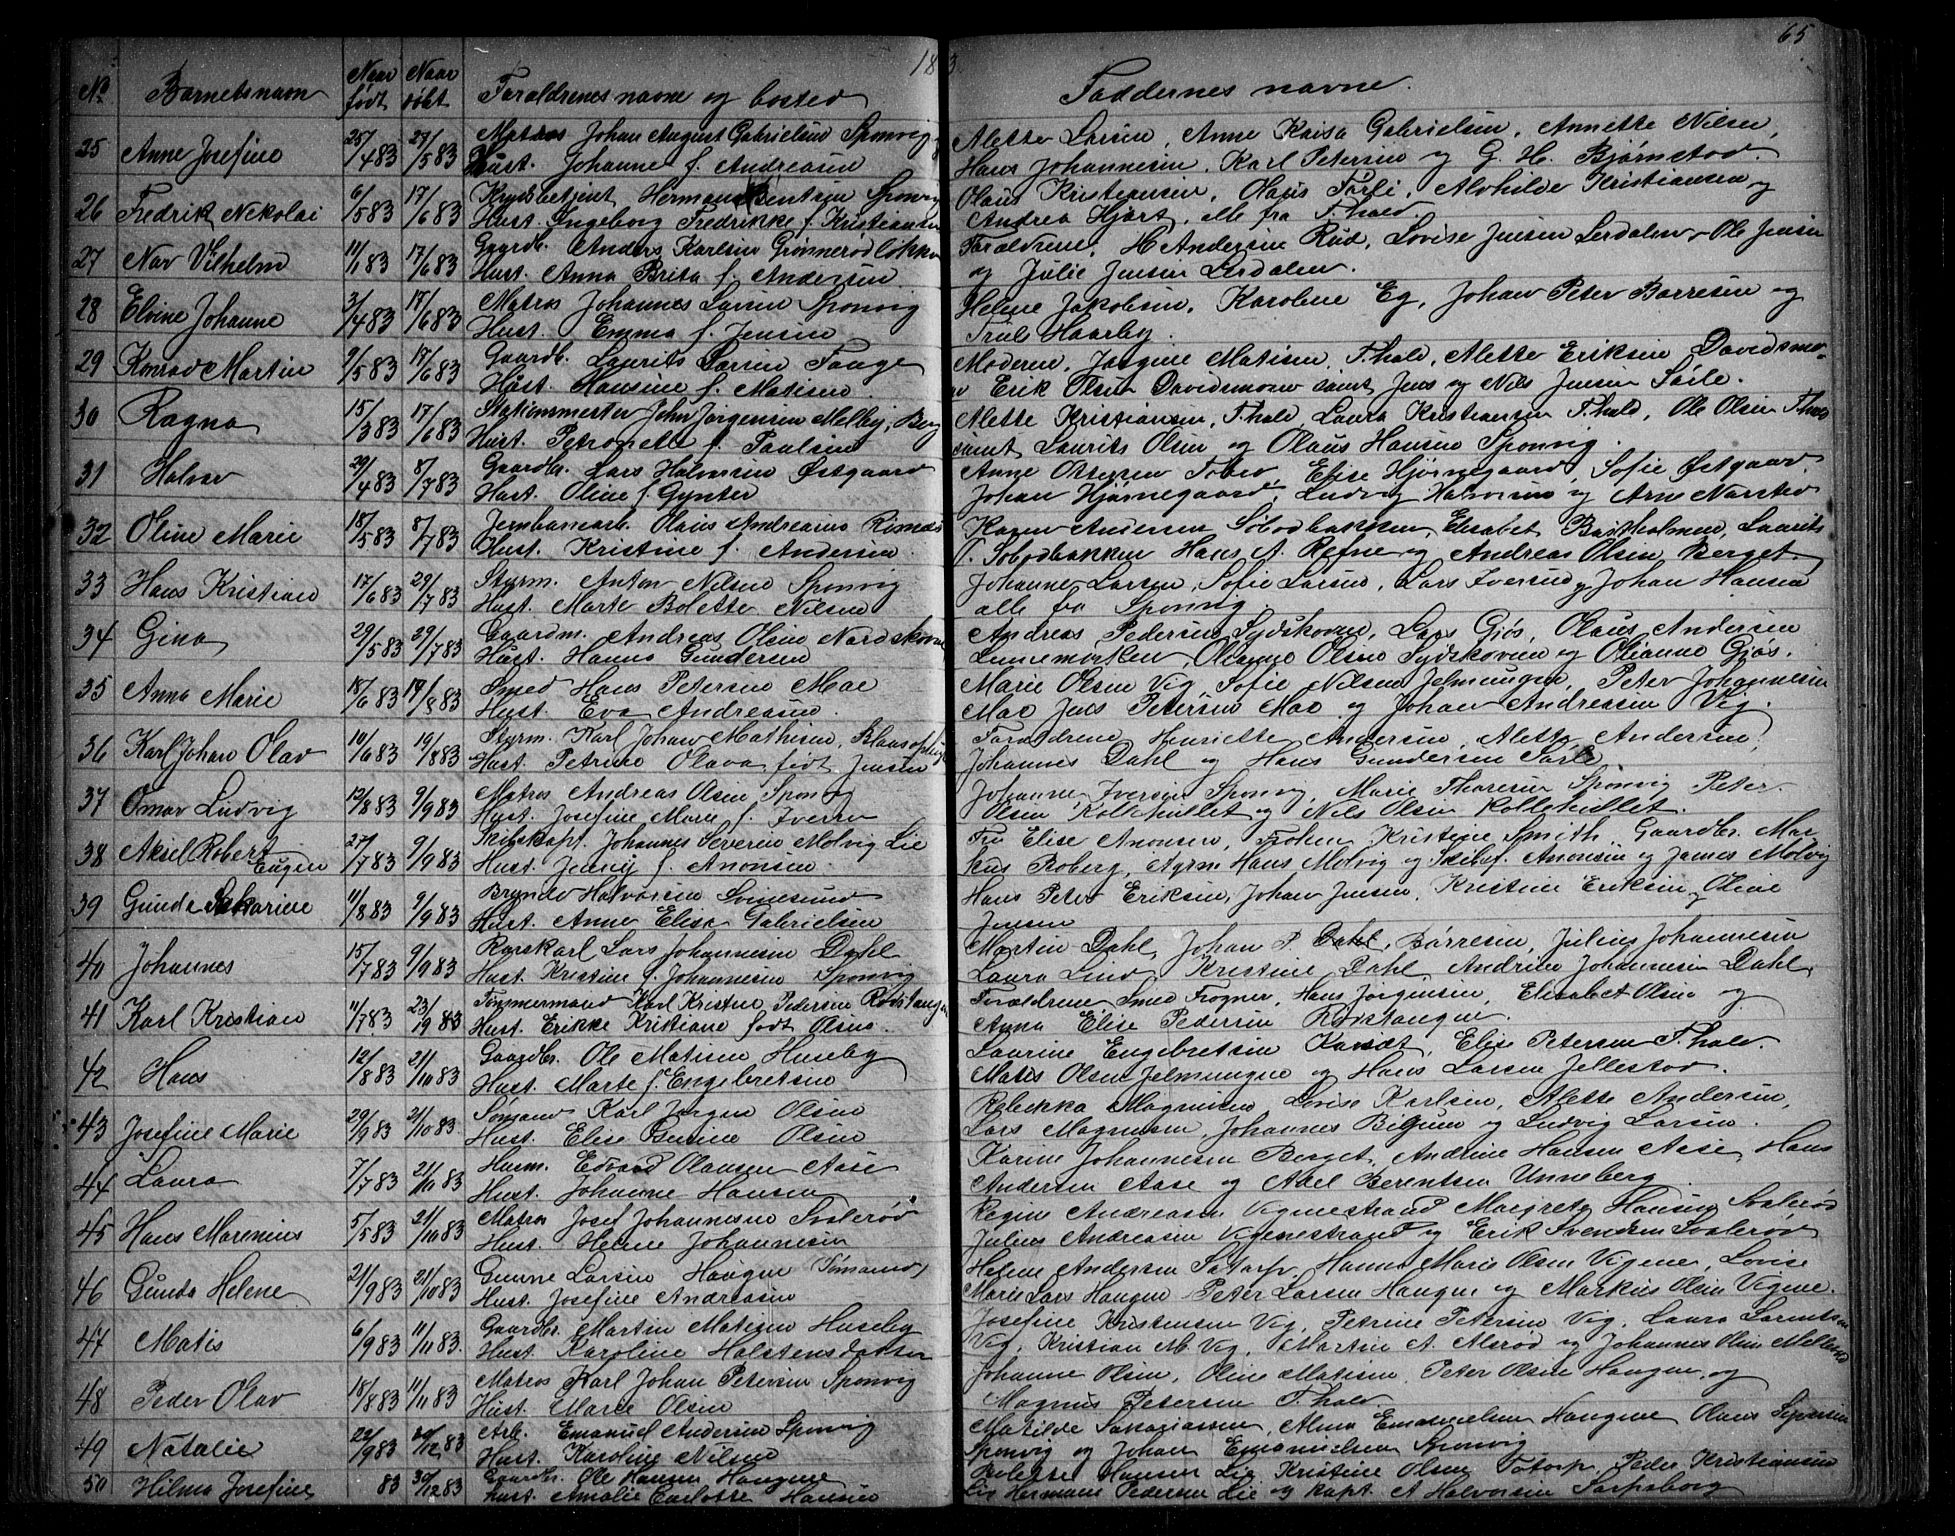 65
1883
No Barnets navn Naar født Naar døbt Foraldrenes navne og bosted Faddernes navne.
25 Anne Josefine 25/4 83 27/5 83 Matros Johan August Gabrielsen Sponvig Alette Larsen, Anne Kaisa Gabrielsen, Annette Nilsen,
Hust. Johanne f. Andreasen Hans Johannesen, Karl Petersen og G. H. Bjørnstad.
26 Fredrik Nekolai 6/5 83 17/6 83 Krydsbetjent Herman Sponvig Olaus Kristensen, Olaus Torli, Alvhilde Kristiansen og
Hust. Ingeborg Fredrikke f. Kristiansen Andrea Hjort, alle fra F.hald
27 Nav Vilhelm 11/1 83 17/6 83 Gaardb. Anders Karlsen Grønnerødløkka Foraldrene, H Andersen Rud, Lovise Jensen Lerdalen, Ole Jensen
Hust. Anna Brita f. Andersen. og Julie Jensen Lerdalen.
28 Elvine Johanne 3/4 83 17/6 83 Matros Johannes Larsen Sponvig Helene Jakobsen, Karoline Eg, Johan Peter Børresen og
Hust. Emma f. Jensen Truls Haarby.
29 Konrad Martin 9/5 83 17/6 83 Gaardb. Laurits Larsen Moderen, Matisen, F.hald, Alette Eriksen
Hust. Hansine f. Matisen. Erik Olsen samt Jens og Nils Jensen
30 Ragna 15/3 83 17/6 83 Stationsmester John Jørgensen Melby, Berg Alette Kristiansen, F.hald, Laura Kristiansen F.hald, Ole Olsen F.hald
Hust. Petronelle f. Paulsen samt Laurits Olsen og Olaus Hansen Sponvig.
31 Halvor 29/4 83 8/7 83 Gaardbr. Lars Halvorsen Østgaard Anne Elise Hjørnegaard, Sofie Østgaard,
Hust. Oline f. Gynter Johan Hjørnegaard, Ludvig Halvorsen og Arne Narsted
32 Oline Marie 18/5 83 8/7 83 Jernbanearb. Olaus Andreasen Karen Andersen Sobodbakken, Elisabet Laurits
Hust. Kristine f. Andersen. Sobodbakken Hans A. Refne og Andreas Olsen Berget.
33 Hans Kristian 17/6 83 29/7 83 Styrm. Anton Nilsen Sponvig Johanne Larsen, Sofie Larsen, Lars Iversen og Johan Hansen
Hust. Marte Bolette Nilsen alle fra Sponvig
34 Gina 29/5 83 29/7 83 Gaardm. Andreas Olsen Nordskoven Andreas Pedersen Sydskoven, Lars Gjøs, Olaus Andersen
Hust. Hanna Gundersen Lunnemorken, Olianne Olsen Sydskoven og Olianne Gjøs.
35 Anna Marie 18/6 83 19/8 83 Smed Hans Petersen Mae Marie Olsen Vig, Sofie Nilsen Jelmungen, Peter Johannesen
Hust. Eva Andreasen. Mae Jens Petersen Mae og Johan Andreasen Vig.
36 Karl Johan Olav 10/6 83 19/8 83 Styrm. Karl Johan Mathisen, Foraldrene Henriette Andersen, Alette Andersen,
Hust. Petrine Olava født Jensen Johannes Dahl og Hans Gundersen
37 Omar Ludvig 12/8 83 9/9 83 Matros Andreas Olsen Sponvig Johanne Iversen Sponvig, Marie Thoresen Sponvig Peter
Hust. Josefine Marie f. Iversen Olsen Kolleholtet og Nils Olsen Kolleholtet.
38 Aksel Robert Eugen 27/7 83 9/9 83 Skibskapt. Johannes Severin Molvig Lie Fru Elise Anonsen, Frøken Kristine Smith Gaardbr. Mar
Hust. Jenny f. Anonsen. kus Boberg, Hans Molvig og Skibsf. Anonsen og James Molvig
39 Gunda Sakarine 11/8 83 9/9 83 Halvorsen Svinesund Hans Peter Eriksen, Johan Jensen, Kristine Eriksen, Oline
Hust. Anne Elise Gabrielsen Jensen
40 Johannes 15/7 83 9/9 83 Rorskarl Lars Johannesen Dahl Martin Dahl, Johan P. Dahl, Børresen, Julius Johannesen
Hust. Kristine f. Johannesen Sponvig Laura Lund, Kristine Dahl, Andrine Johannesen Dahl,
41 Karl Kristian 11/7 83 23/9 83 Tømmermand Karl Kristen Pedersen Rødstangen Foraldrene Smed Frogner, Hans Jørgensen, Elisabet Olsen og
Hust. Erikke Kristiane født Olsen. Anna Elise Pedersen Rødstangen.
42 Hans 12/8 83 21/10 83 Gaardbr. Ole Matisen Huseby Laurine Engebretsen Karset, Elise Petersen F.hald.
Hust. Marte f. Engebretsen Matis Olsen Jelmungen og Hans Larsen Jellestad.
43 Josefine Marie 29/9 83 21/10 83 Sømand Karl Jørgen Olsen Rebekka Magnusen Lovise Karlsen, Alette Andersen,
Hust. Elise Olsen Lars Magnusen, Johannes og Ludvig Larsen.
44 Laura 7/7 83 21/10 83 Husm. Edvard Olausen Aase Karine Johannesen Berget, Andrine Hansen Aase, Hans
Hust. Johanne Hansen Andersen Aase og Abel Berentsen Unneberg
45 Hans Marenius 5/5 83 21/10 83 Matros Josef Johannesen Svalerød Regine Andreasen Vigenestrand Margrete Hansen Svalerød
Hust. Helene Johannesen Julius Andreasen Vigenestrand og Erik Svendsen Svalerød
46 Gunda Helene 21/9 83 21/10 83 Gunne Larsen Haugne Sømand, Helene Andersen Totorp, Hanna Marie Olsen Vigene, Lovise
Hust. Josefine Andreasen Marie Lars Haugne Peter Larsen Haugne og Markus Olsen Vigene.
47 Matis 6/9 83 11/11 83 Gaardbr. Martin Matisen Huseby Josefine Kristensen Vig, Petrine Petersen Vig, Laura Larentsen
Hust. Karoline Halstensdatter Vig, Kristian M. Vig, Martin A. Alerød og Johannes Olsen
48 Peder Olav 18/8 83 11/11 83 Matros Karl Johan Petersen Sponvig Johanne Olsen, Oline Matisen, Peter Olsen Haugen, og
Hust. Marie Olsen Magnus Petersen F.hald.
49 Natalie 22/9 83 30/12 83 Arb. Emanuel Andersen Sponvig Matilde Sakariassen, Alma Emanuelsen Haugene Olaus
Hust. Karoline Nilsen Sponvig og Johan Emanuelsen Sponvig
50 Hilma Josefine 83 30/12 83 Gaardbr. Ole Hansen Haugene Bolette Hansen Lie, Kristine Olsen Totorp, Peder Kristiansen
Hust. Amalie Carlotte Hansen Lie Hermans Pedersen Lie og kapt. A Halvorsen Sarpsborg